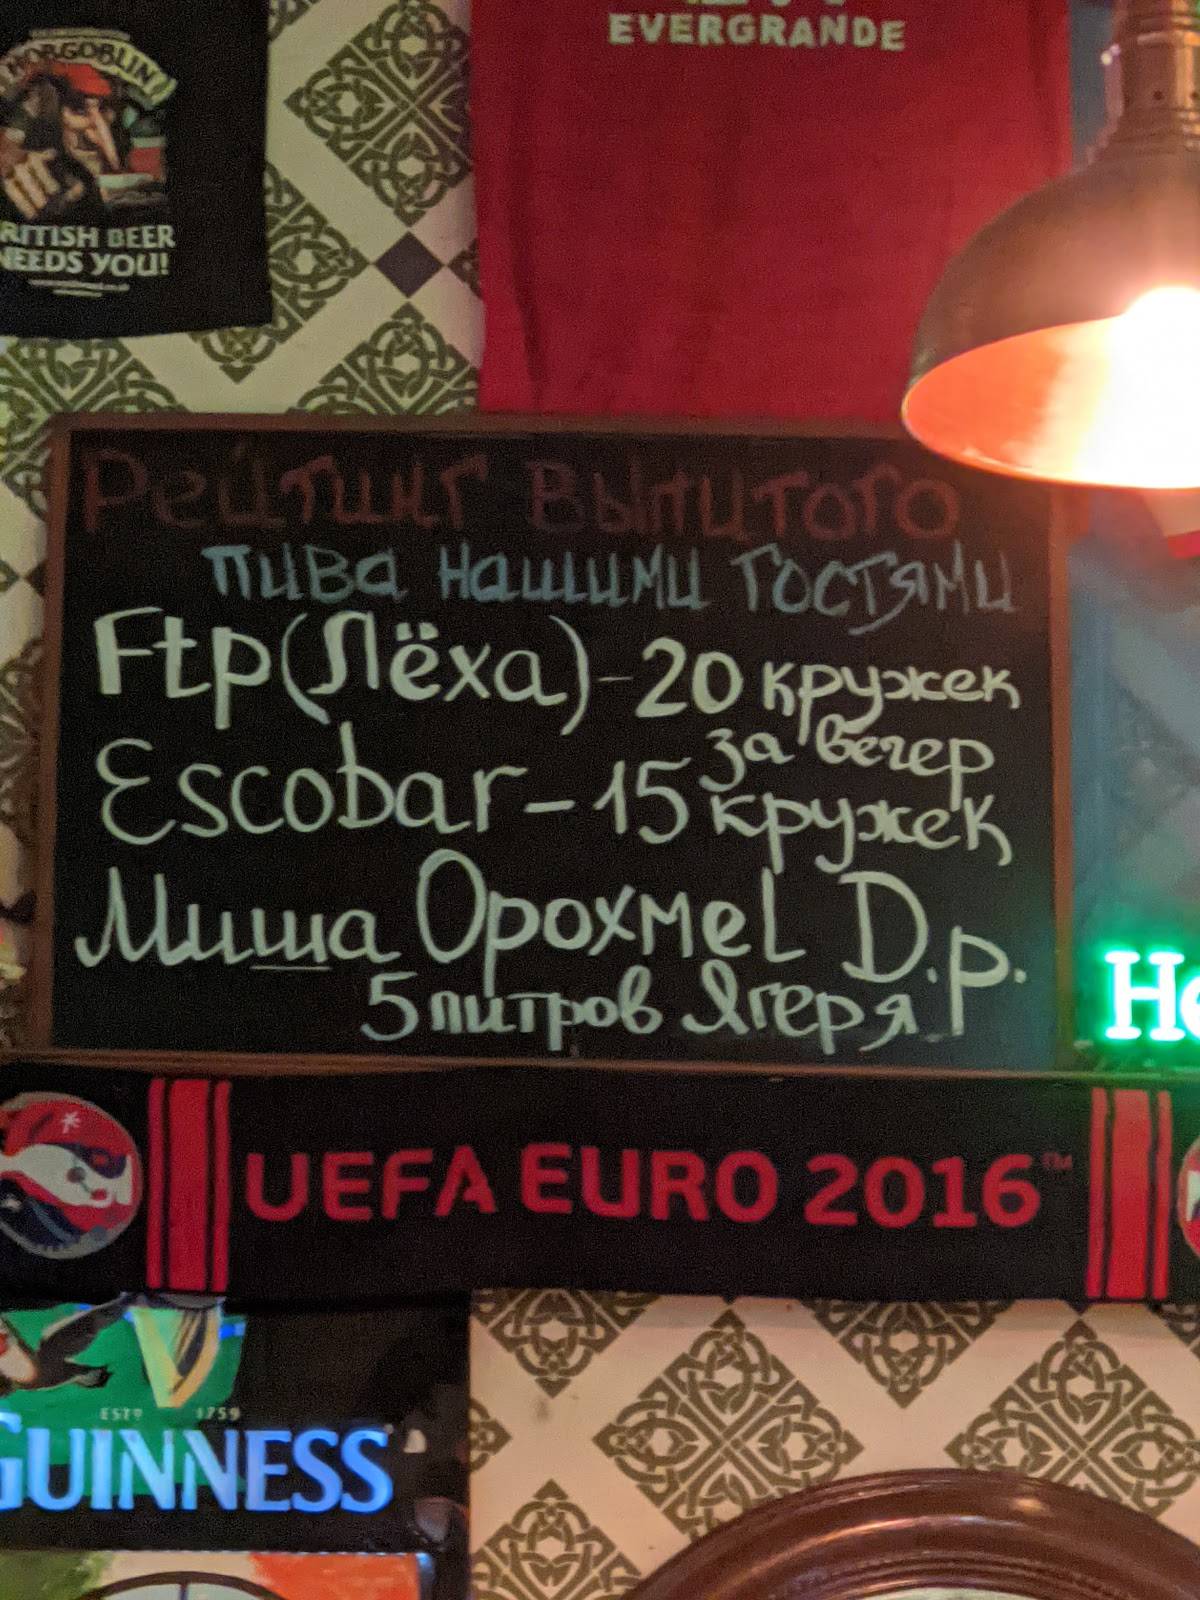 HOBGOBLIN
EVERGRANDE
RITISH BEER
NEEDS YOU!
Рейтинг выпитого
пива нашими гостями
Ftp (Лёха) - 20 кружек
за вечер
Escobar - 15 кружек
Миша Орохмеl D.р.
5 литров Ягеря
He
UEFA EURO 2016™
ESTD 1759
GUINNESS